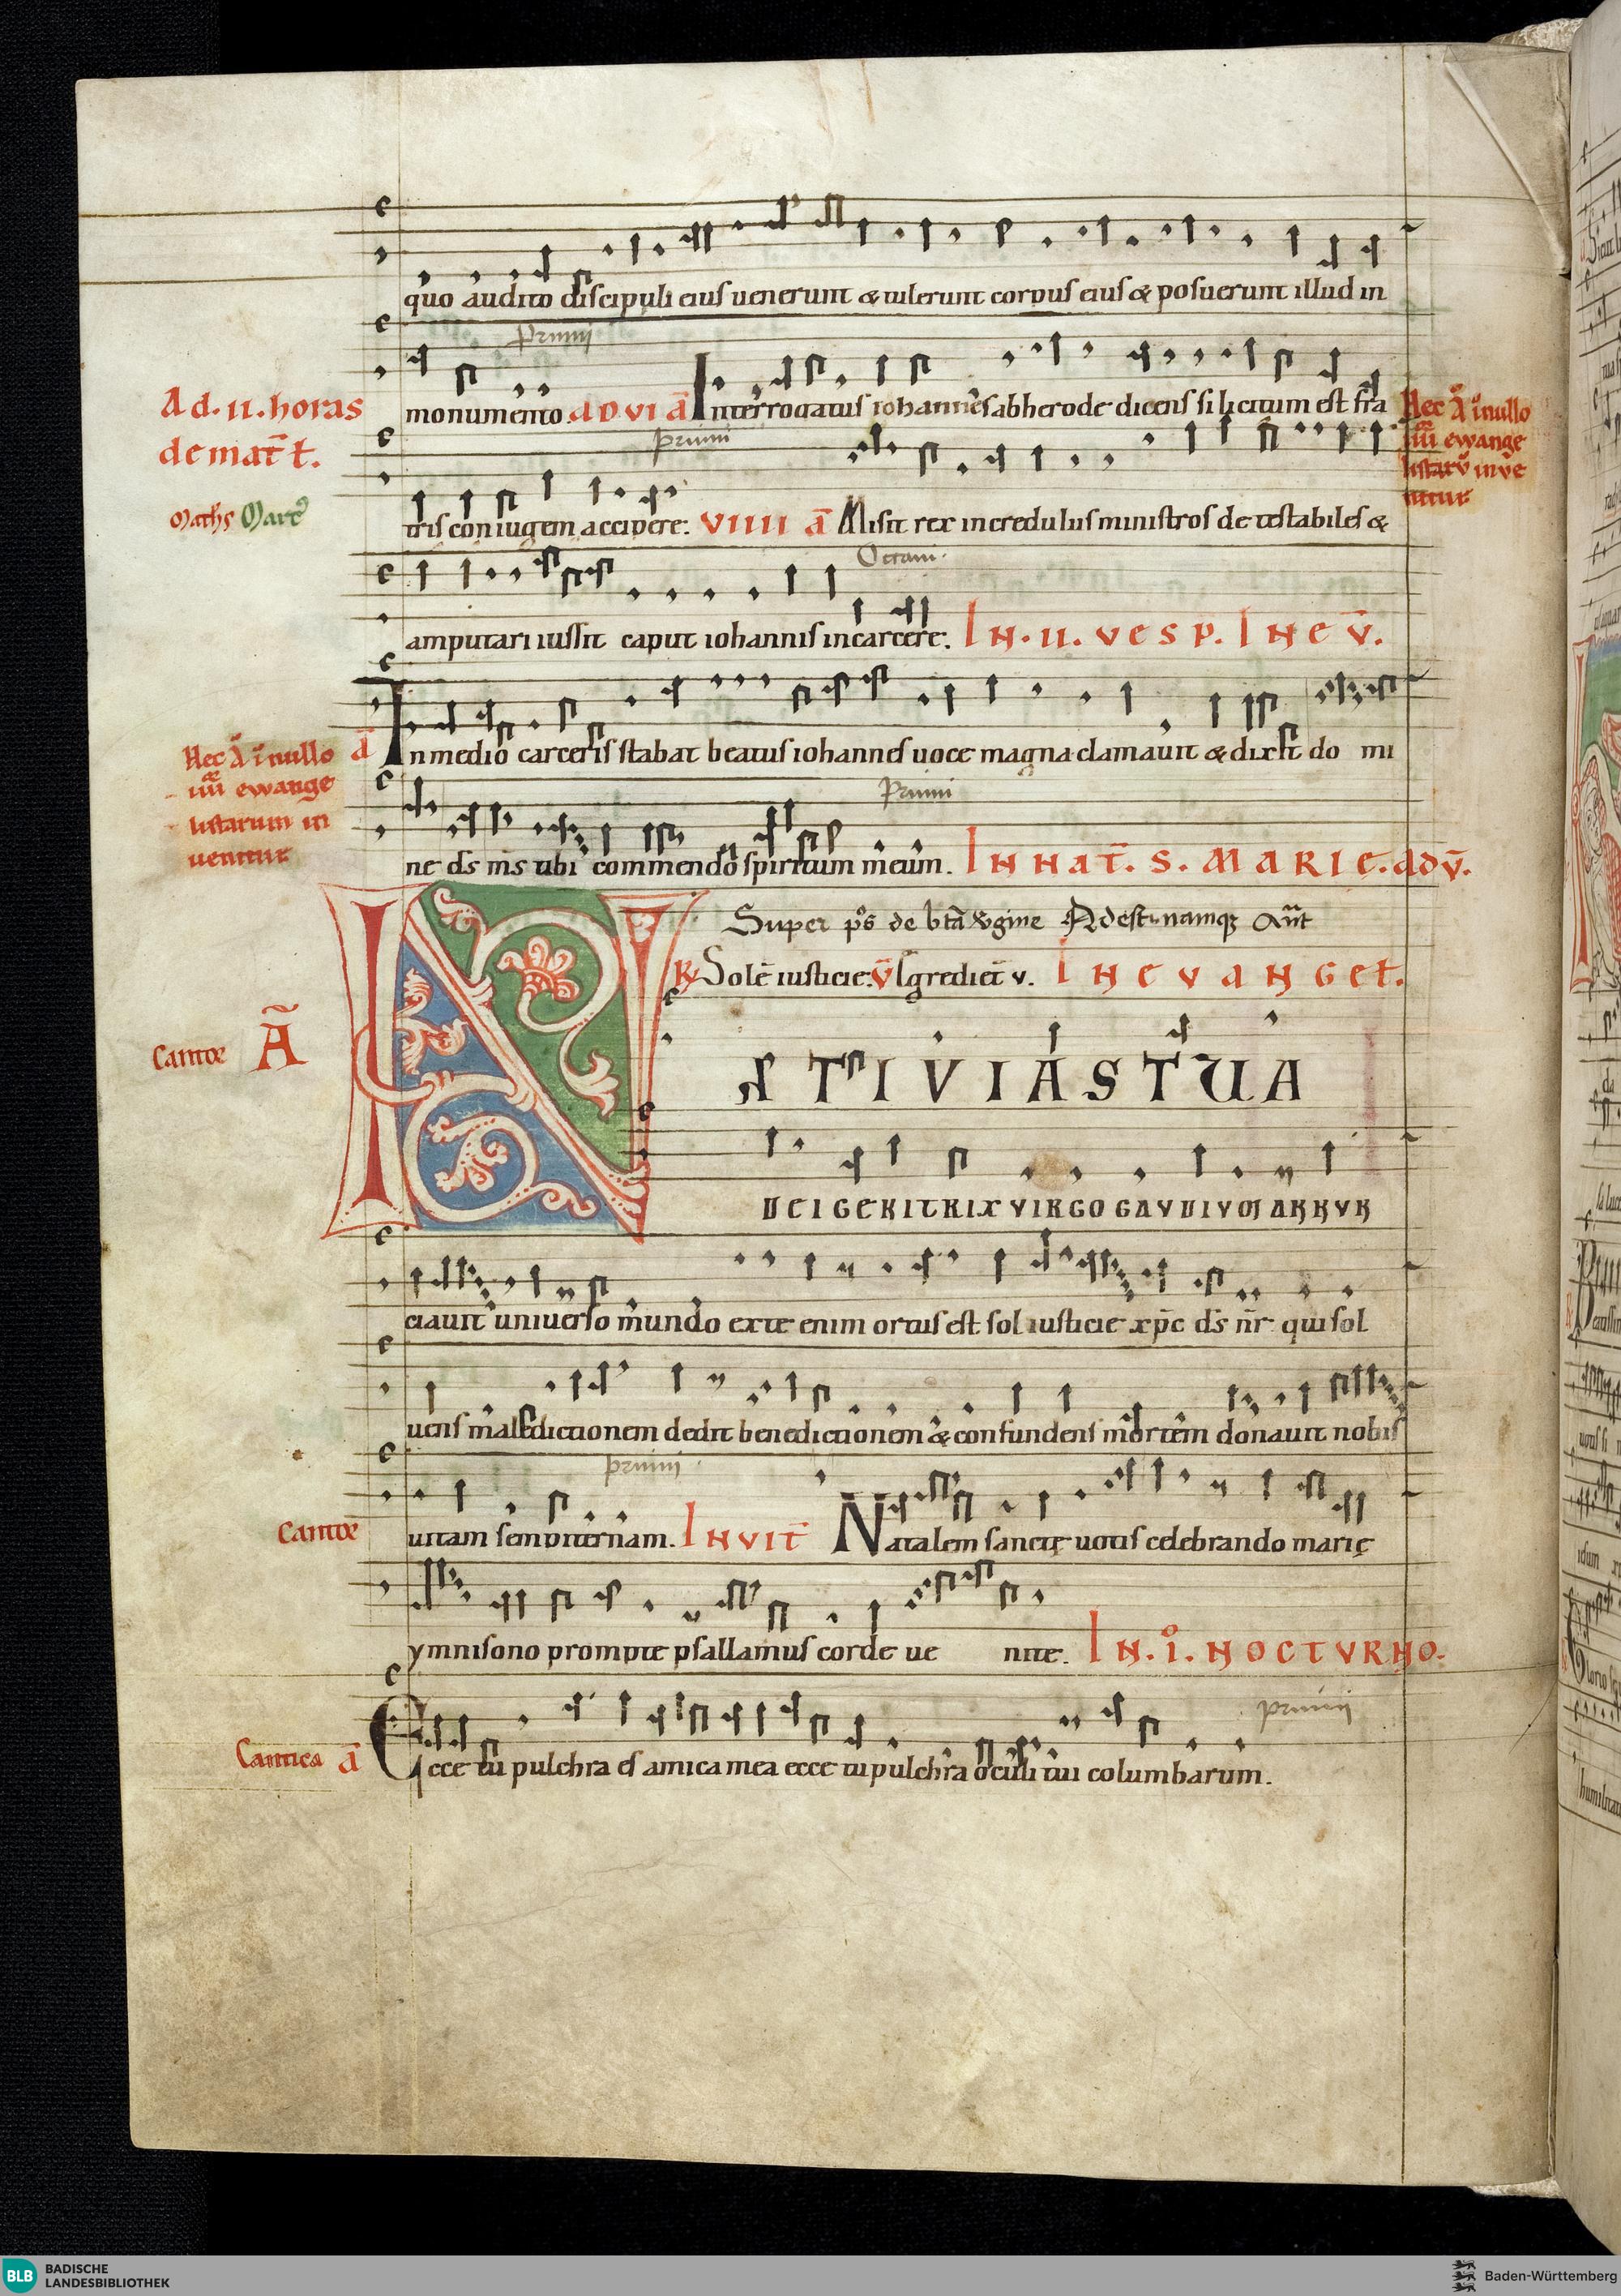 quo audito discipuli eius uenerunt & tulerunt corpus eius & posuerunt illud in
Primi
Ad .ii. horas
de mart̄ t̄.
Maths Marc᷒
monumento. AD VI ā Interrogatus iohannes ab herode dicens si licitum est fr̄a
Hec Ā ī nullo
iiii ewange
listarū inve
nitur
primi
tris coniugem accipere: VIIII ā Misit rex incredulus ministros detestabiles &
Octaui
amputari iussit caput iohannis in carcere: IN .II. VESP. IN EV̄.
Hec Ā ī nullo
iiii ewange
listarum in
uenitur
ā In medio carceris stabat beatus iohannes uoce magna clamauit & dixit do mi
Primi
ne ds̄ ms̄ tibi commendo spiritum meum. IN NAT̄. S. MARIE. ADV̄.
Super ps̄ de btā v̄gine Adest namq; Ant̄
℟ Solē iusticie. V̄ Egrediet̄ v. IN EVANGEL.
Cantor Ā
NATIVITAS TUA
DEI GENITRIX VIRGO GAVDIVM ANNVN
ciauit uniuerso mundo ex te enim ortus est sol iusticie xp̄c ds̄ nr̄ qui sol
uens maledictionem dedit benedictionem & confundens mortem donauit nobis
primi
Cantor
uitam sempiternam. INVIT̄ Natalem sanctę uotis celebrando marię
ymnisono prompte psallamus corde ue nite. IN .I. NOCTVRNO.
primi
Cantica ā Ecce tu pulchra es amica mea ecce tu pulchra oculi tui columbarum.
BLB BADISCHE
LANDESBIBLIOTHEK
Baden-Württemberg